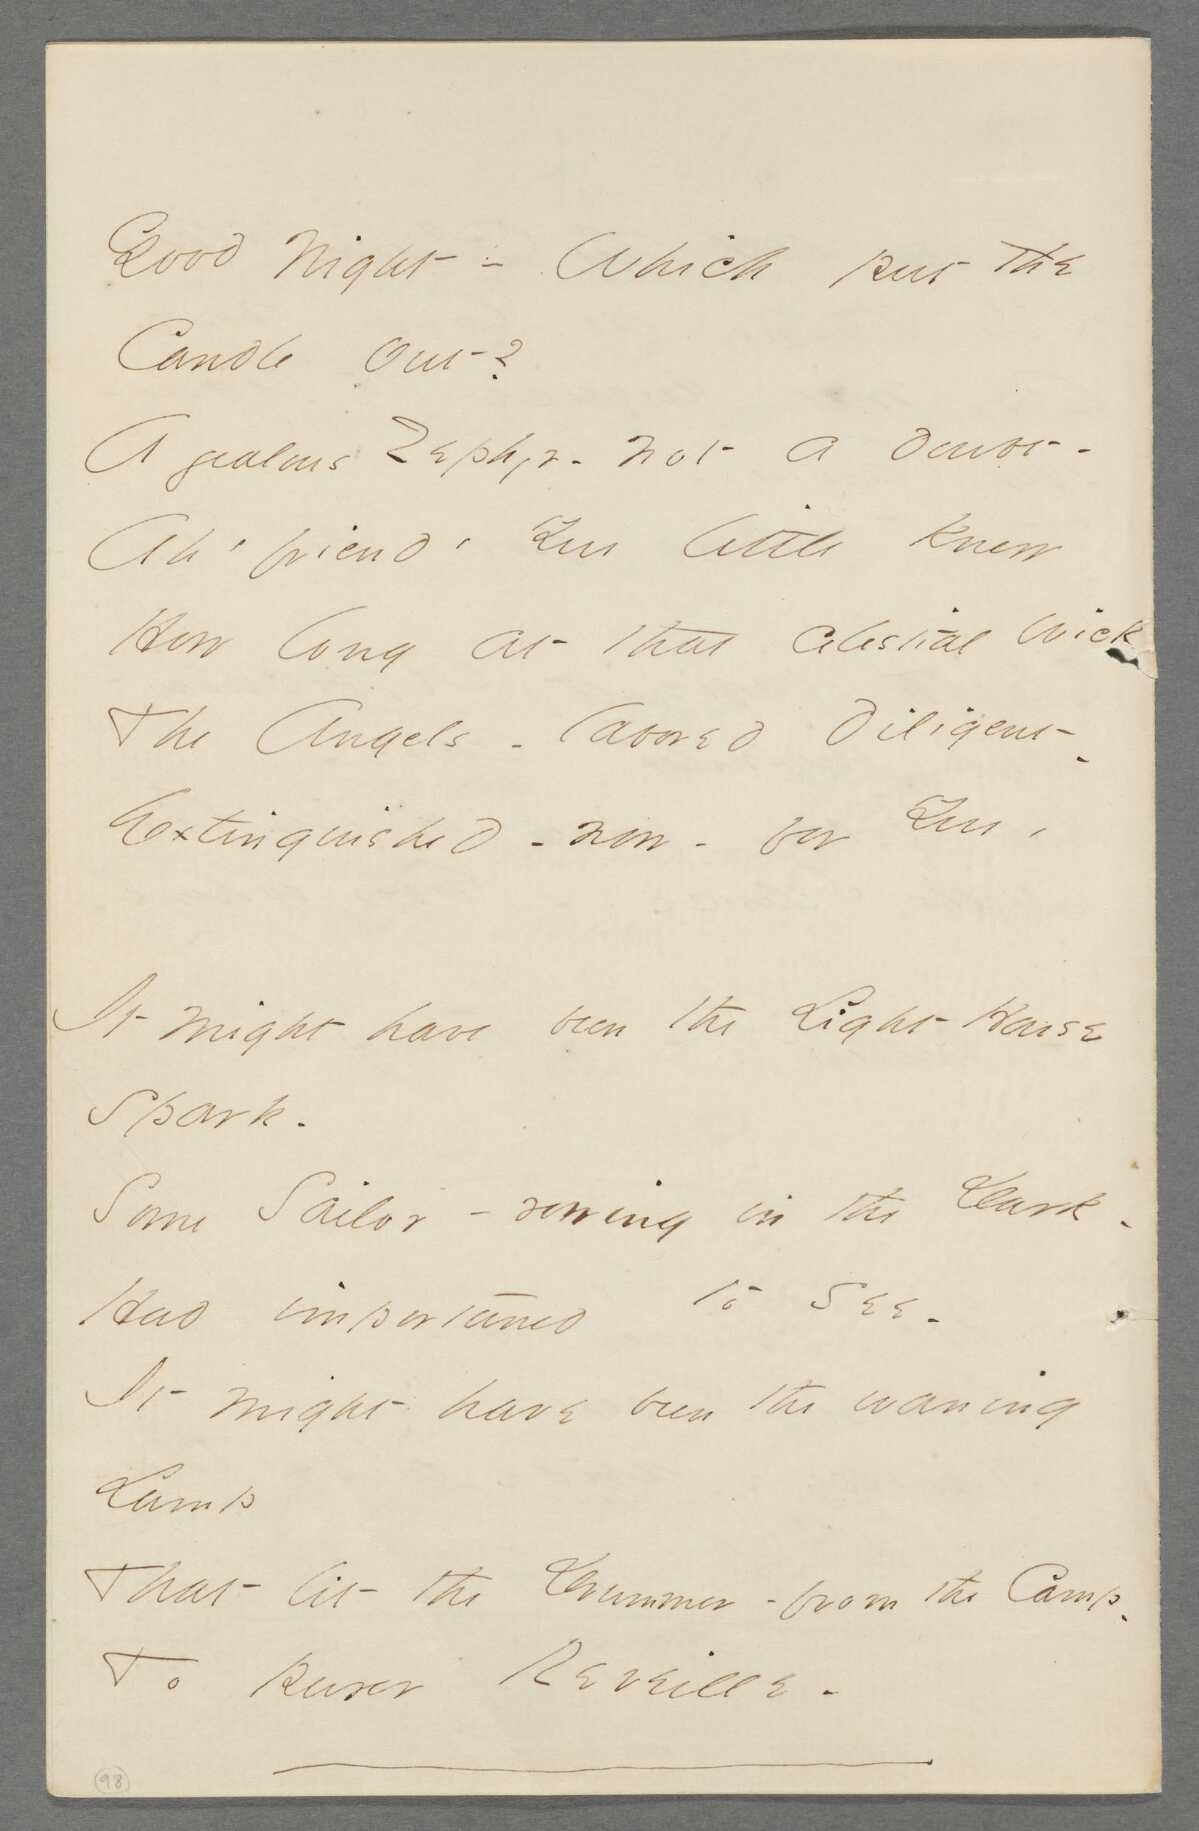 Good Night - Which put the
Candle out?
A jealous Zephyr - not a doubt -
Ah, friend, You little knew
How long at that celestial wick
The Angels - labored diligent -
Extinguished - now - for You,
It might have been the Light House
Spark -
Some Sailor - rowing in the Dark -
Had importuned to see -
It might have been the waning
Lamp
That lit the Drummer - from the Camp -
To purer Reveille -
98